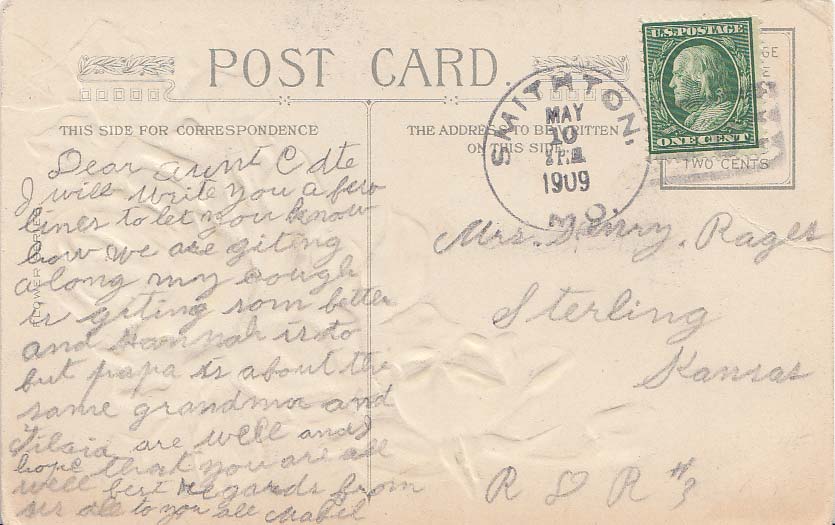 POST CARD.
THIS SIDE FOR CORRESPONDENCE
THE ADDRESS TO BE WRITTEN
ON THIS SIDE
U.S. POSTAGE
ONE CENT
TWO CENTS
SMITHTON, MO.
MAY
10
1909
FLOWER SERIES
Dear Aunt
I will write you a few
lines to let you know
how we are giting
along my cough
is giting som better
and Hannah is to
but papa is about the
same grandma and
are well and I
hope that you are all
well best regards from
us all to you all Mabel
Mrs. Henry. Rages
Sterling
Kansas
R R #3